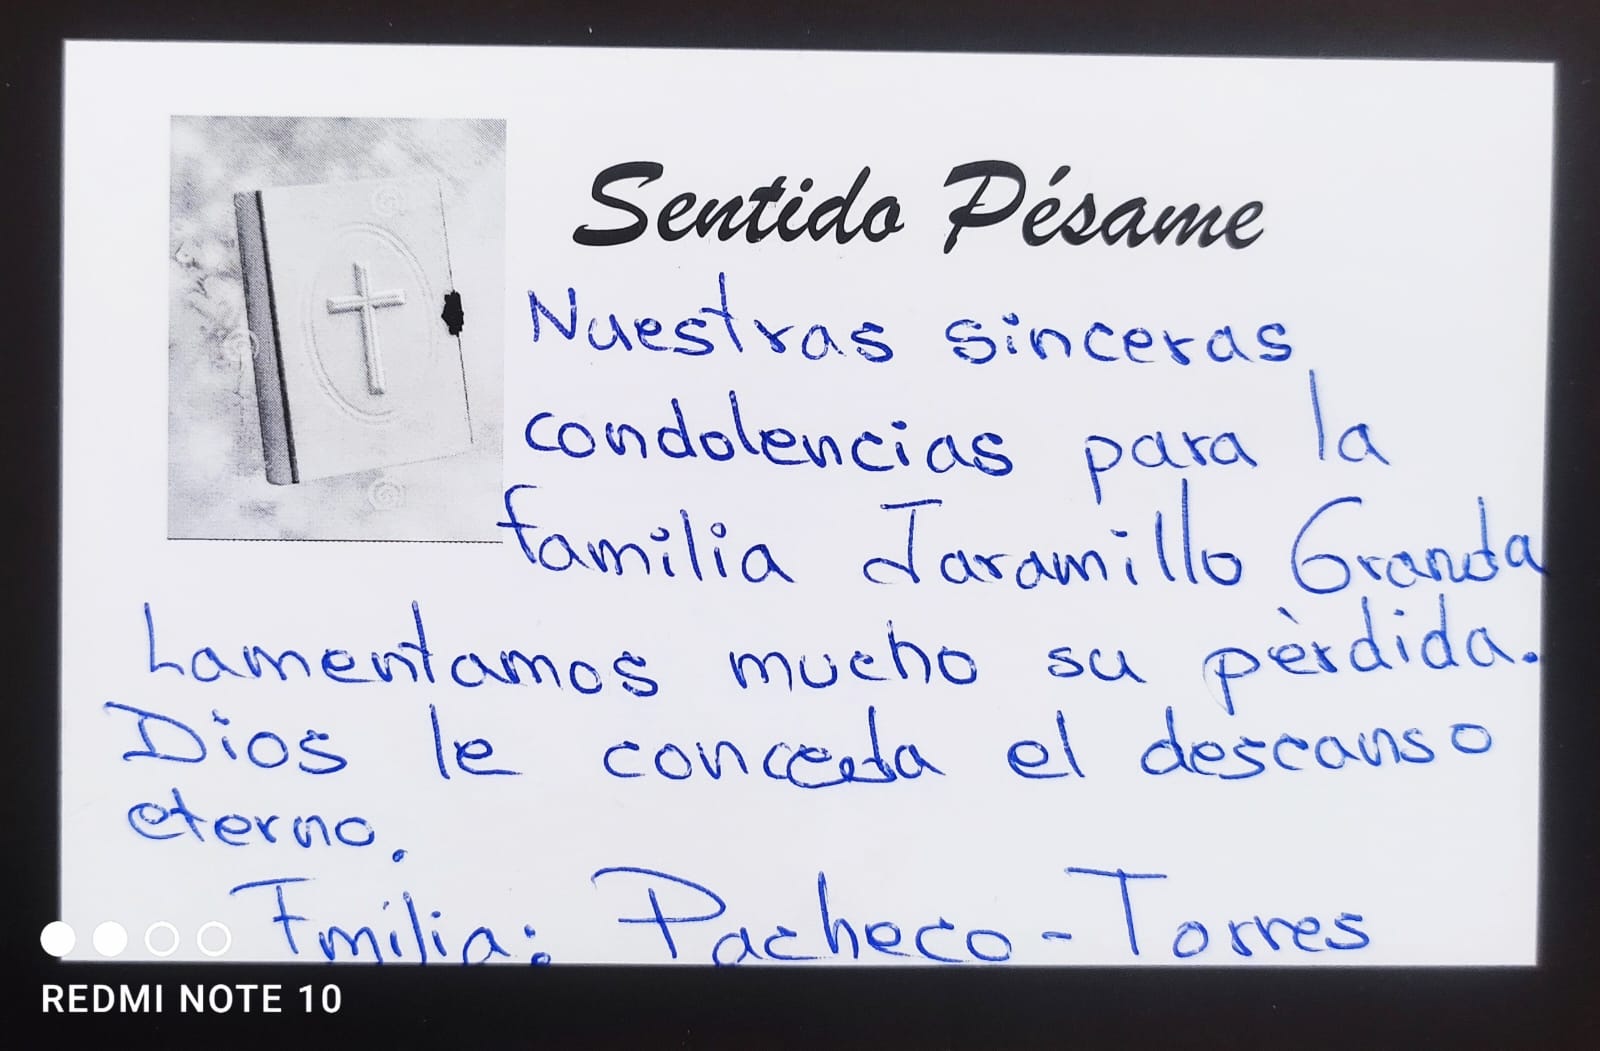 Sentido Pésame
Nuestras sinceras
condolencias para la
familia Jaramillo Granda
Lamentamos mucho su pèrdida.
Dios le conceda el descanso
eterno.
Fmilia: Pacheco - Torres
REDMI NOTE 10